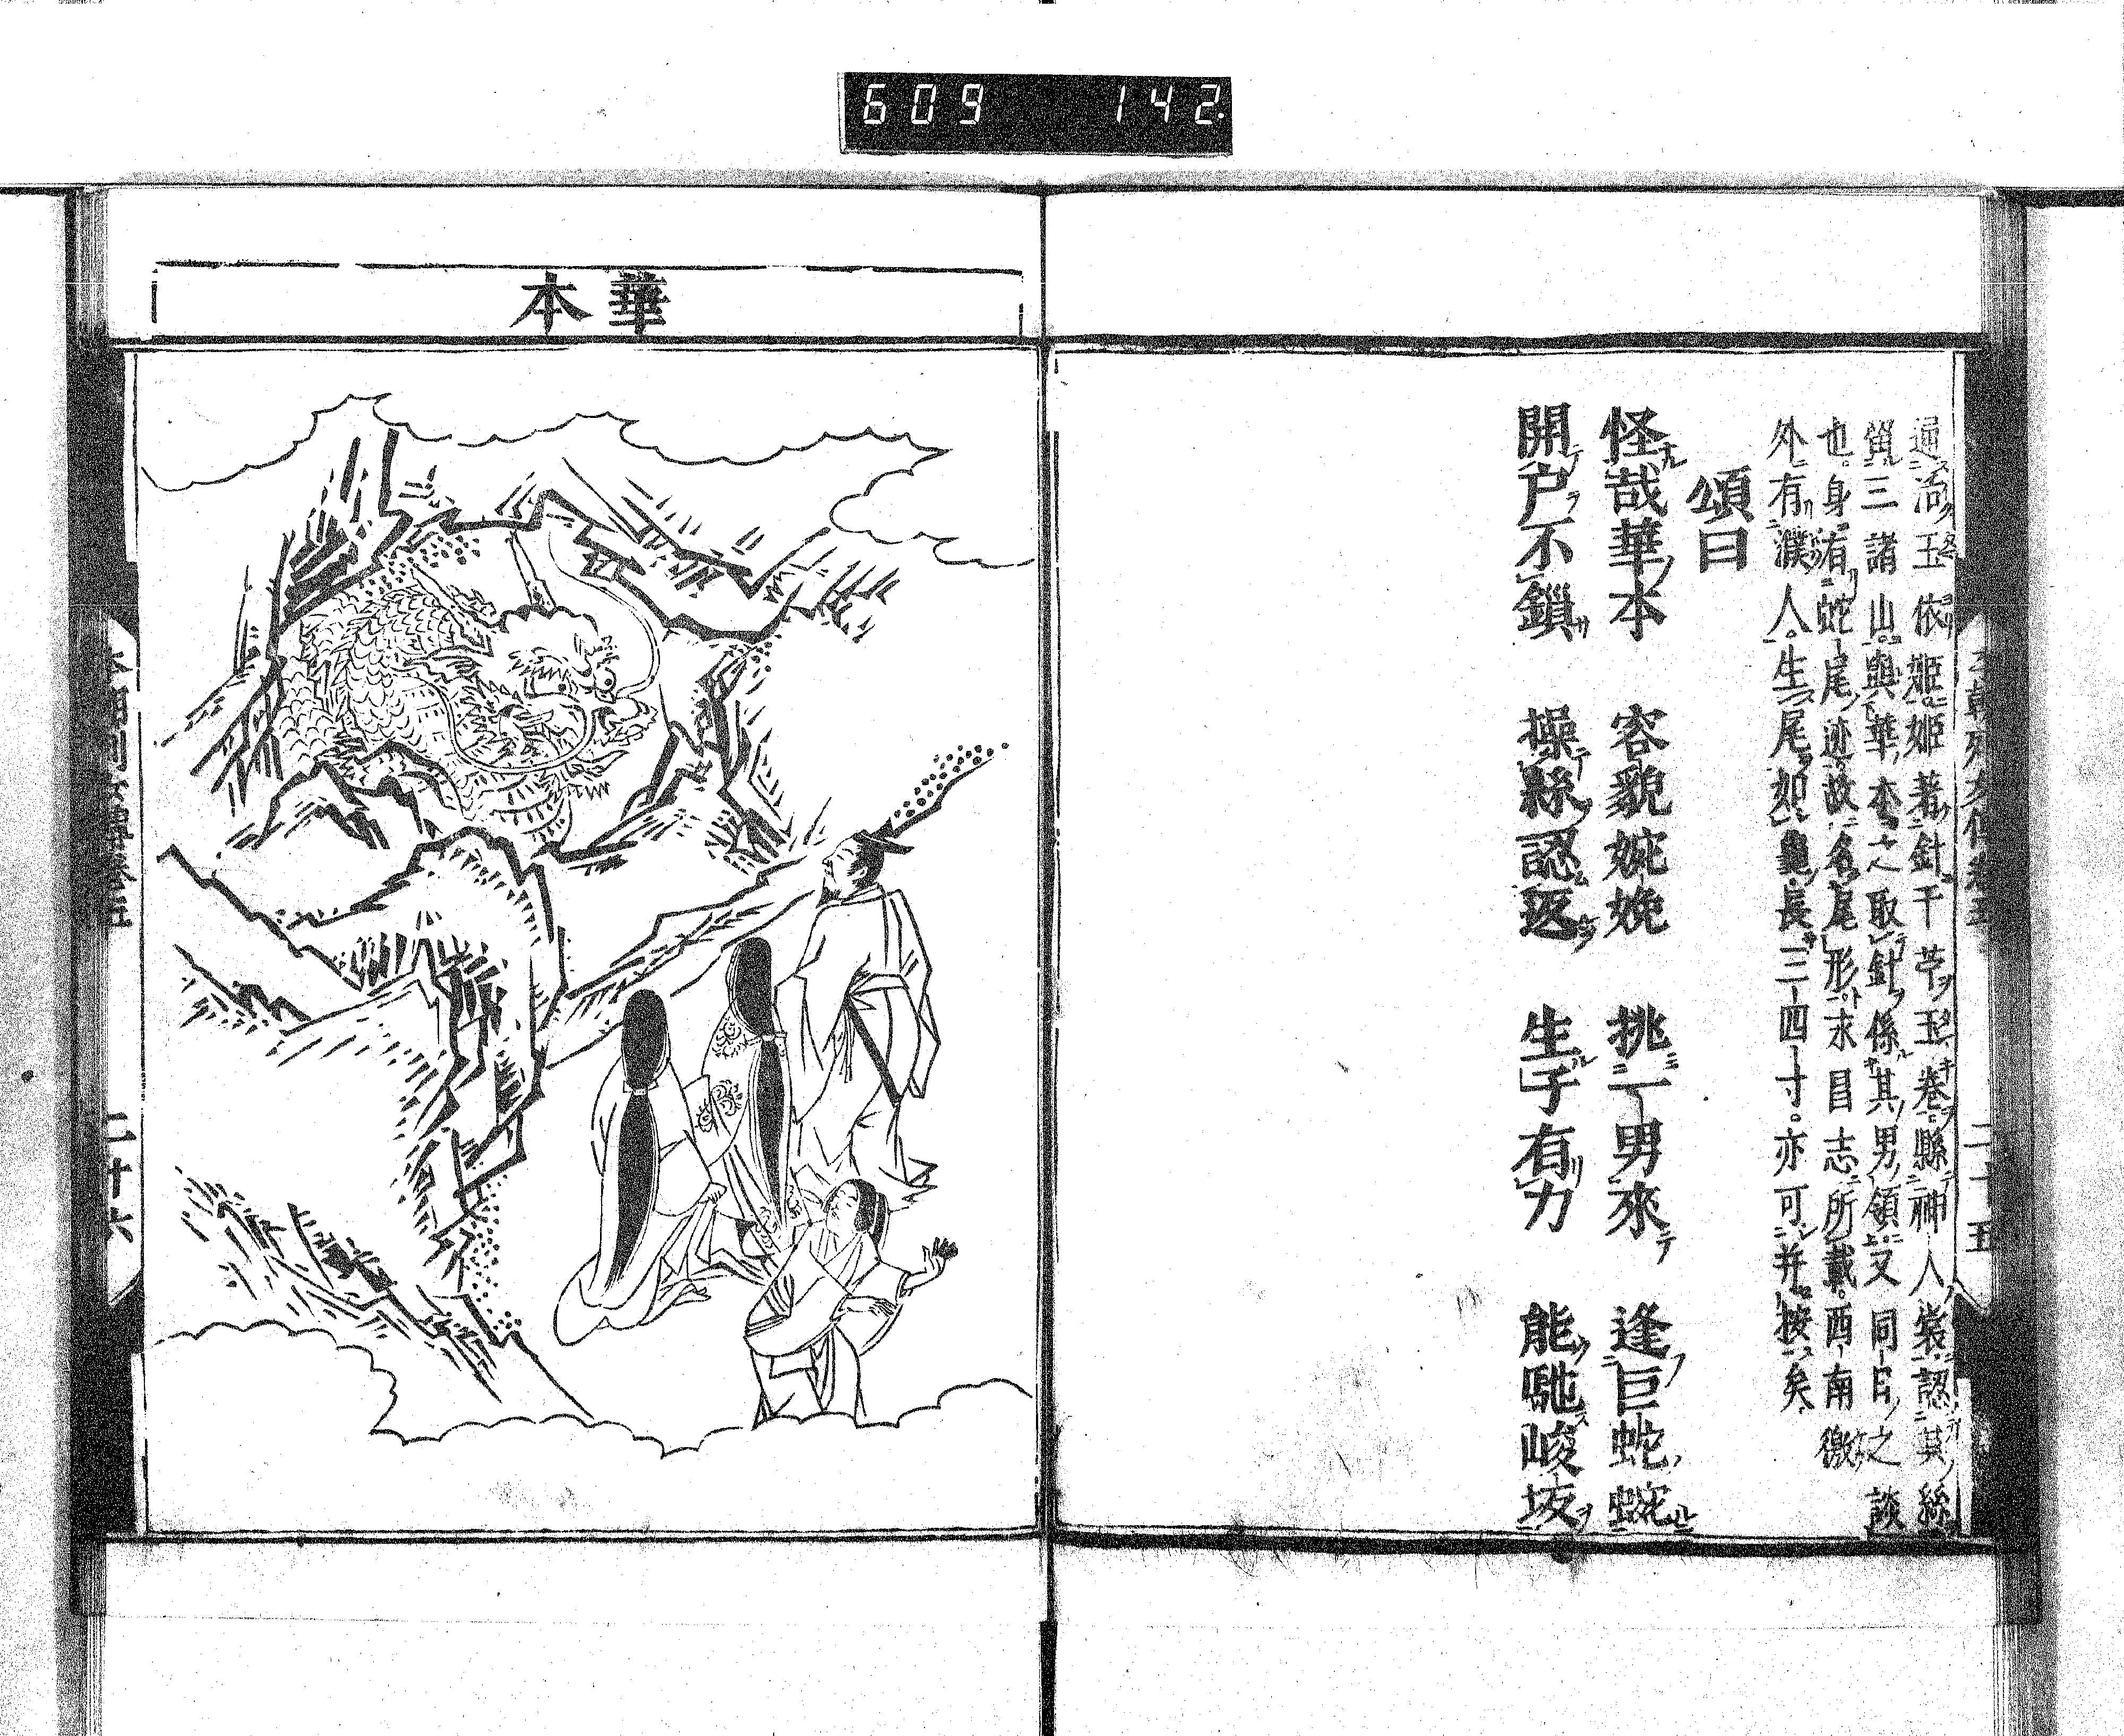 609 142
本朝列女傳卷五 二十五
通活玉依姫姫著針于苧玉卷縣神人裳認其絲
留三諸山與華本之取針係其男領又同日之談
也身有蛇尾迹故名尾形求目志所載西南徼
外有濮人生尾如龜長三四寸亦可并按矣
頌曰
怪哉華本 容貌婉娩 挑一男來 逢巨蛇蜿
開户不鎖 操絲認返 生子有力 能馳峻坂
華本
本朝列女傳卷五 二十六